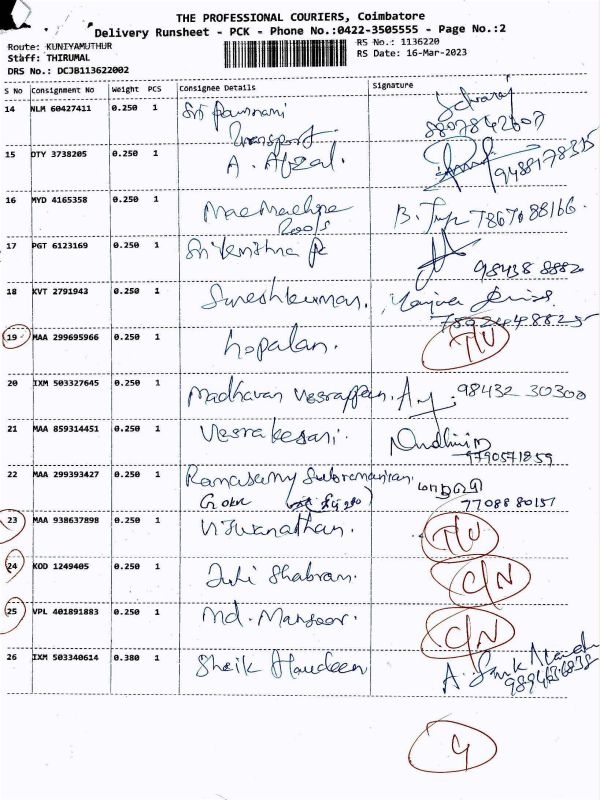 THE PROFESSIONAL COURIERS, Coimbatore
Delivery Runsheet - PCK - Phone No.:0422-3505555 - Page No.:2
Route: KUNIYAMUTHUR
RS No.: 1136220
Staff: THIRUMAL
RS Date: 16-Mar-2023
DRS No.: DCJB113622002
S No Consignment No Weight PCS Consignee Details Signature
14 NLM 60427411 0.250 1 Sri
Transport 8807842607
15 DTY 3738205 0.250 1 A. Afzal. 9488178315
16 MYD 4165358 0.250 1 7867088166
17 PGT 6123169 0.250 1 98438 88820
18 KVT 2791943 0.250 1 Sureshkumar.
19 MAA 299695966 0.250 1 Gopalan. T/U
20 IXM 503327645 0.250 1 Madhavan 98432 30300
21 MAA 859314451 0.250 1
9790571859
22 MAA 299393427 0.250 1 Ramasamy Subramanian.
7708880157
23 MAA 938637898 0.250 1 Viswanathan. T/U
24 KOD 1249405 0.250 1 Juli Shabran. C/N
25 VPL 401891883 0.250 1 Md. Mansoor. C/N
26 IXM 503340614 0.380 1 Sheik Alaudeen